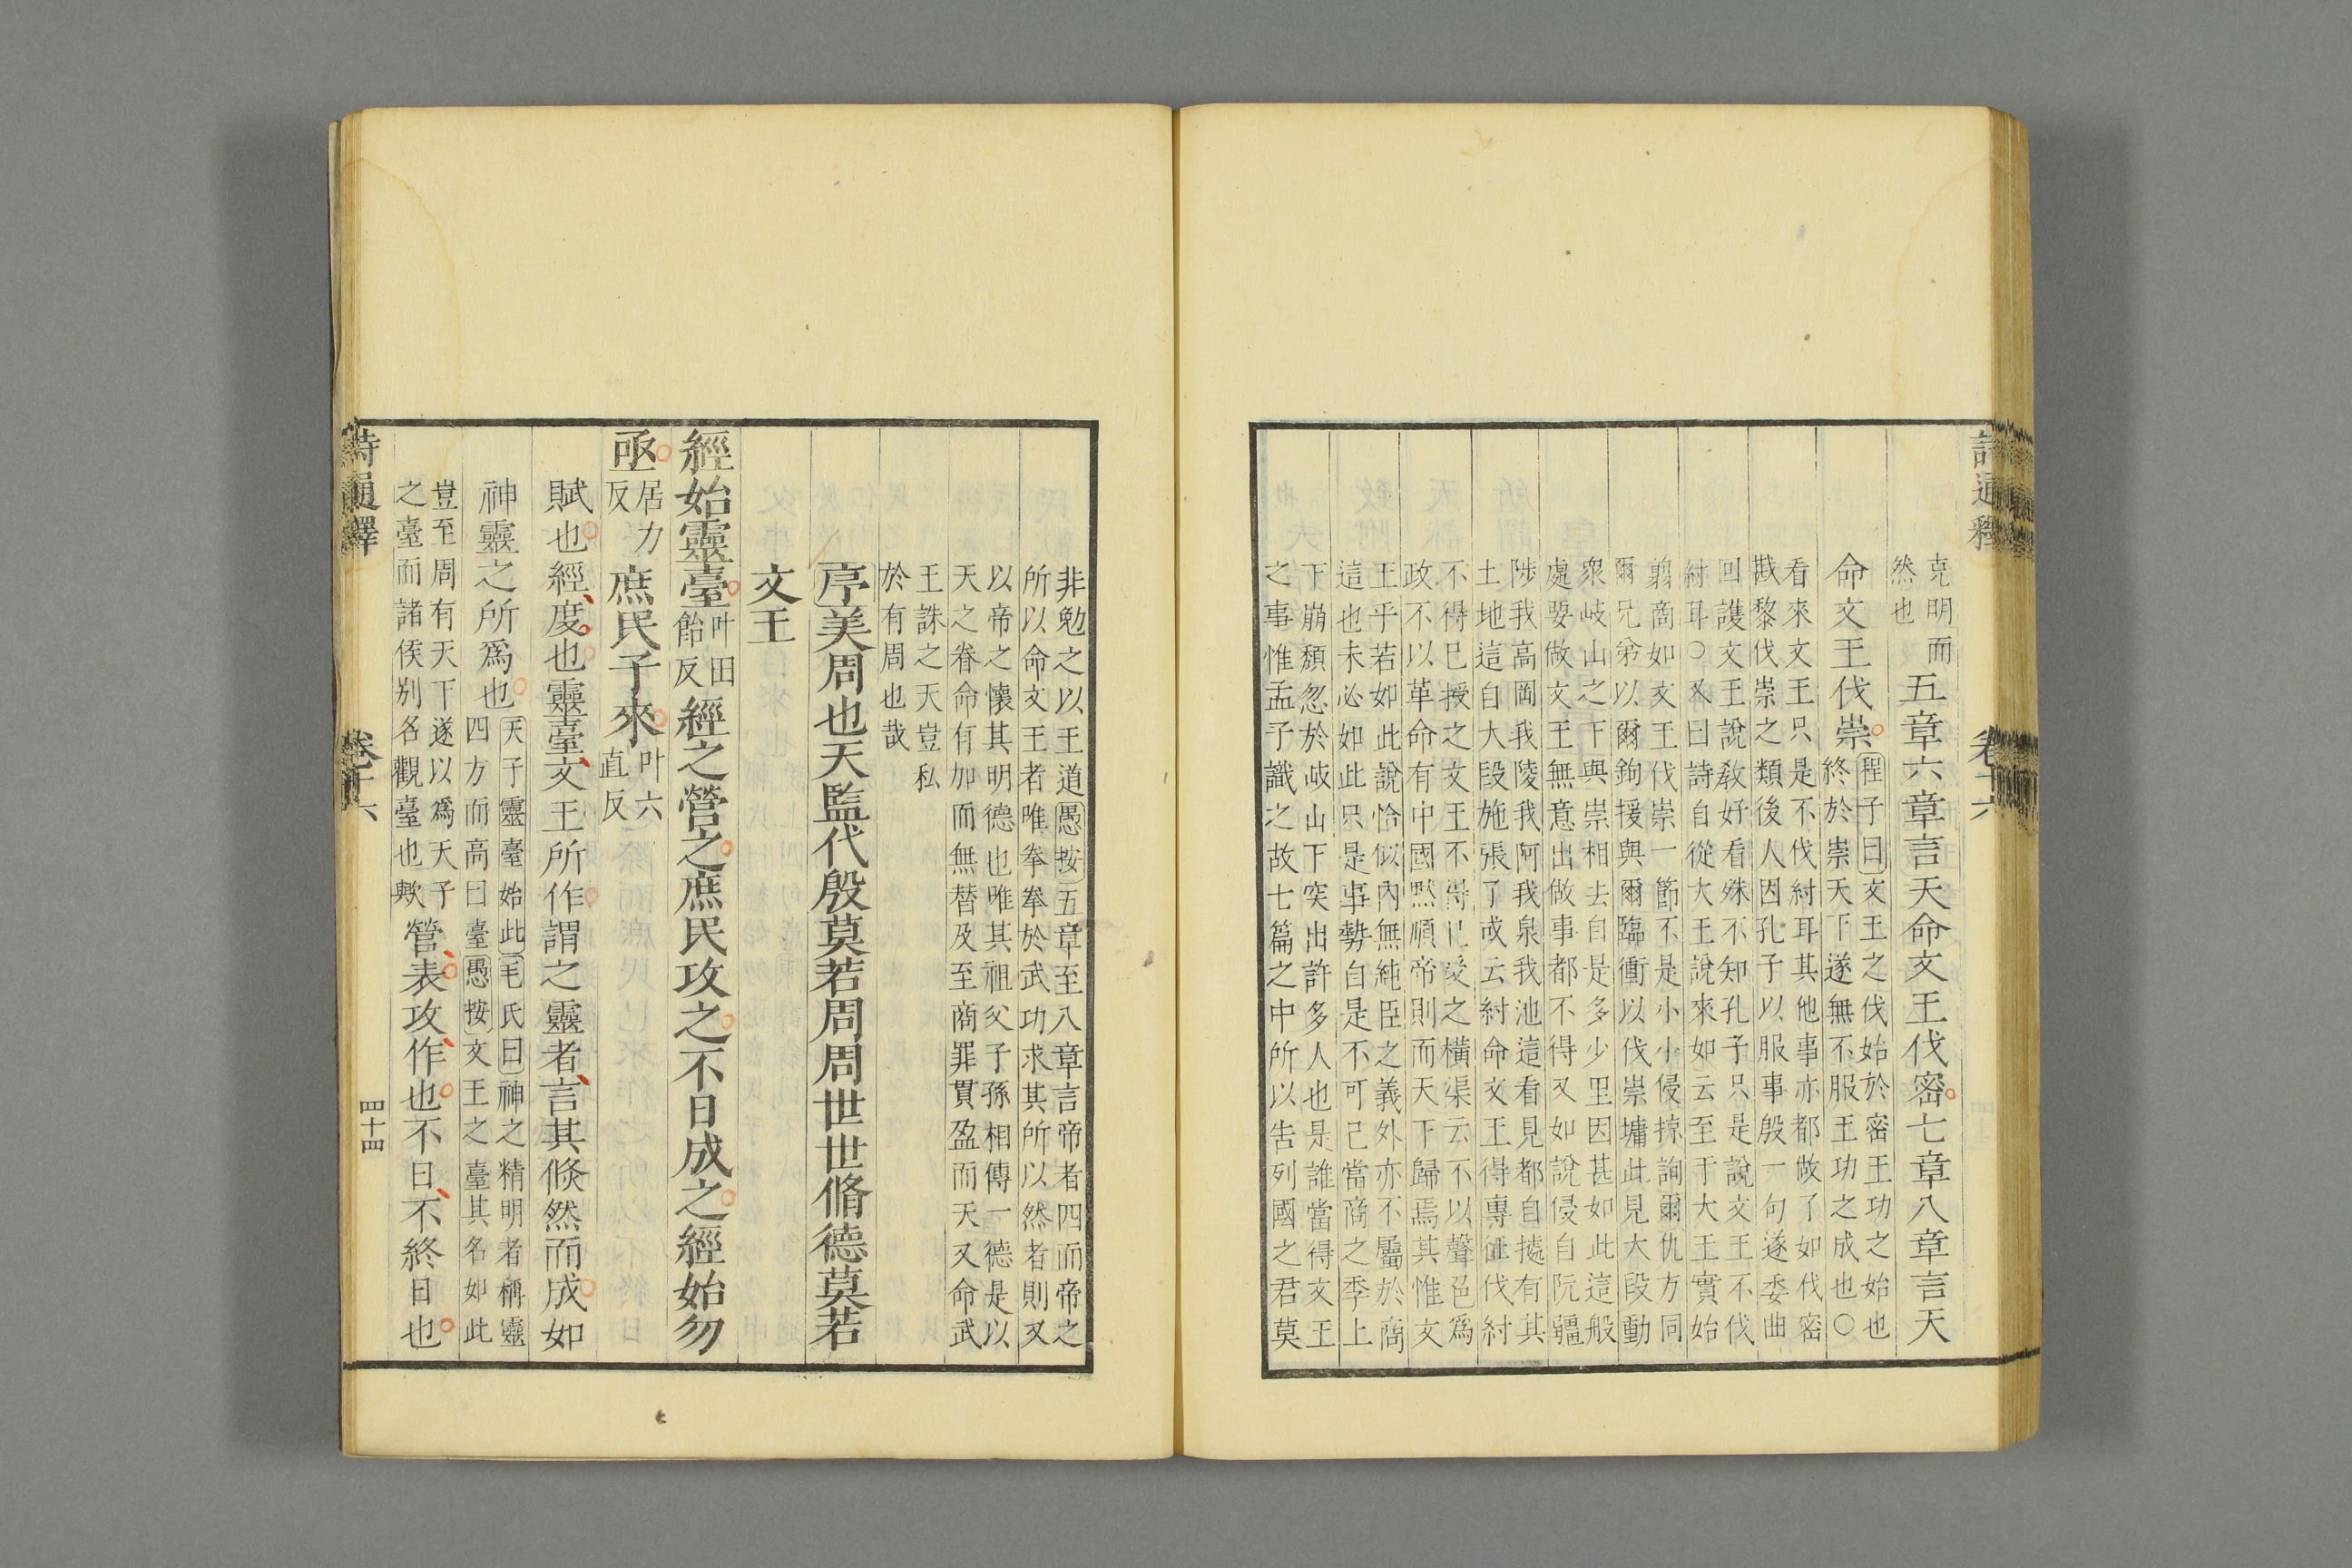 詩通釋　卷十六
克明而
然也
五章六章言天命文王伐密七章八章言天
命文王伐崇
程子曰文王之伐始於密王功之始也
終於崇天下遂無不服王功之成也○
看來文王只是不伐紂耳其他事亦都做了如伐密
戡黎伐崇之類後人因孔子以服事殷一句遂委曲
回護文王說教好看殊不知孔子只是說文王不伐
紂耳○又曰詩自從大王說來如云至于大王實始
翦商如文王伐崇一節不是小小侵掠詢爾仇方同
爾兄弟以爾鉤援與爾臨衝以伐崇墉此見大段動
衆岐山之下與崇相去自是多少里因甚如此這般
處要做文王無意出做事都不得又如說侵自阮疆
陟我高岡我陵我阿我泉我池這看見都自據有其
土地這自大段施張了或云紂命文王得專征伐紂
不得已授之文王不得已受之橫渠云不以聲色爲
政不以革命有中國默順帝則而天下歸焉其惟文
王乎若如此說恰似內無純臣之義外亦不屬於商
這也未必如此只是事勢自是不可已當商之季上
下崩頹忽於岐山下突出許多人也是誰當得文王
之事惟孟子識之故七篇之中所以告列國之君莫
非勉之以王道愚按五章至八章言帝者四而帝之
所以命文王者唯拳拳於武功求其所以然者則又
以帝之懷其明德也唯其祖父子孫相傳一德是以
天之眷命有加而無替及至商罪貫盈而天又命武
王誅之天豈私
於有周也哉
序美周也天監代殷莫若周周世世脩德莫若
文王
經始靈臺
叶田
飴反
經之營之庶民攻之不日成之經始勿
亟
居力
反
庶民子來
叶六
直反
賦也經度也靈臺文王所作謂之靈者言其倐然而成如
神靈之所爲也
天子靈臺始此毛氏曰神之精明者稱靈
四方而高曰臺愚按文王之臺其名如此
豈至周有天下遂以爲天子
之臺而諸侯别名觀臺也歟
營表攻作也不日不終日也
詩通釋　卷十六　四十四